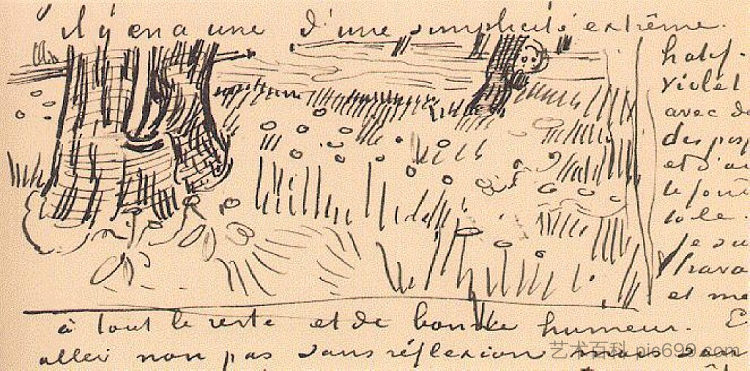 il y en a une d'une simplicité extrême.
violet
avec d
des
et d'a
le
Je su
trava
et me
à tout le reste et de bonne humeur. E
aller non pas sans réflexion mais san
艺术百科 pic699.com